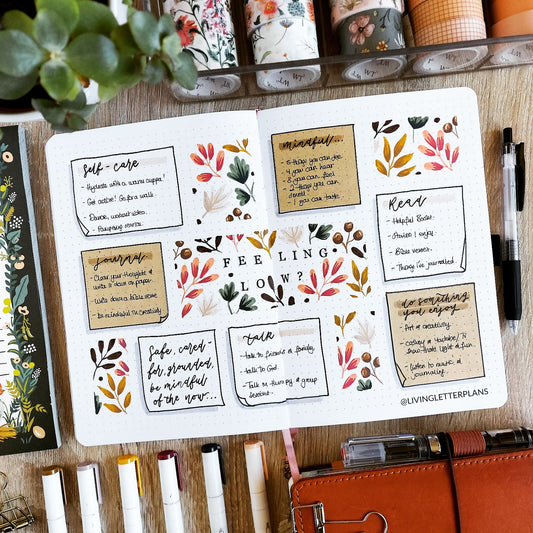 Self-care
- Hydrate with a warm cuppa!
- Get active! Go for a walk.
- Dance, workout video.
- Pampering session.
mindful...
- 5 things you can see
- 4 you can hear
- 3 you can feel
- 2 things you can
smell
- 1 you can taste
Read
- Helpful books.
- Stories I enjoy
- Bible verses.
- Things I've journalled.
journal
- Clear your thoughts &
write it down on paper.
- Write down a bible verse
- Be mindful in creativity
FEELING
LOW?
do something
you enjoy
- Art & creativity.
- listen to music &
journalling.
Safe, cared-
for, grounded,
be mindful
of the now...
talk
- Talk to friends & family.
- Talk to God.
- Talk in therapy & group
sessions.
@LIVINGLETTERPLANS